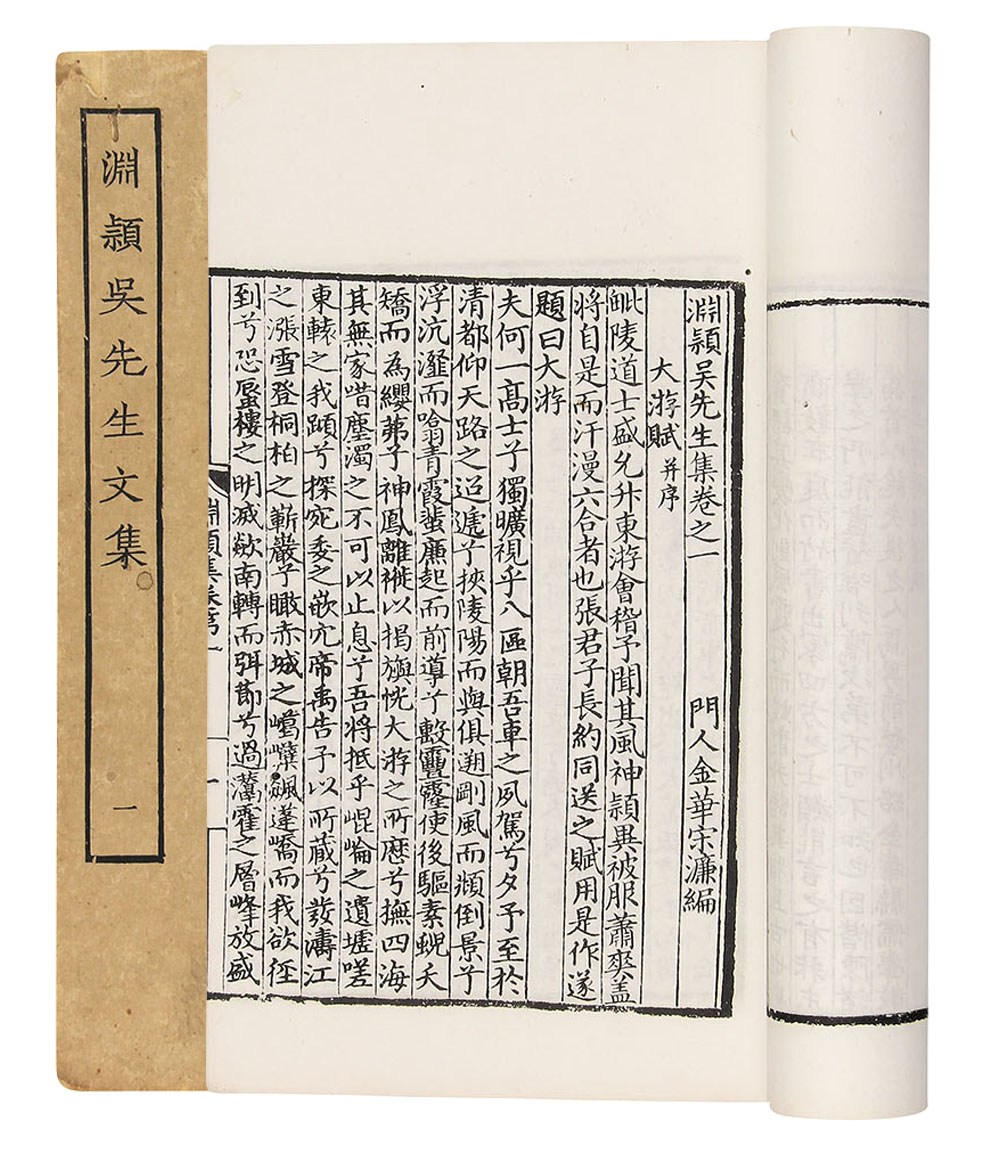 淵頴吳先生文集
一
淵頴吳先生集卷之一
門人金華宋濂編
大游賦 并序
毗陵道士盛允升東游會稽予聞其風神頴異被服蕭爽盖
將自是而汗漫六合者也張君子長約同送之賦用是作遂
題曰大游
夫何一髙士兮獨曠視乎八區朝吾車之夙駕兮夕予至於
清都仰天路之迢遞兮挾陵陽而與俱遡剛風而頫倒景兮
浮沆瀣而噏青霞蜚廉起而前導兮靆使後驅素蜺夭
矯而為纓茀兮神鳳離褷以揭旟恱大游之所歴兮撫四海
其無家唶塵濁之不可以止息兮吾將抵乎崐崘之遺墟嗟
東轅之我頋兮探宛委之嵌穴帝禹告予以所藏兮發濤江
之漲雪登桐柏之嶄巖兮瞰赤城之飊蓬嶠而我欲徑
到兮恐蜃樓之明滅欻南轉而弭節兮過灊霍之層峰放盛
淵頴集卷第一
一